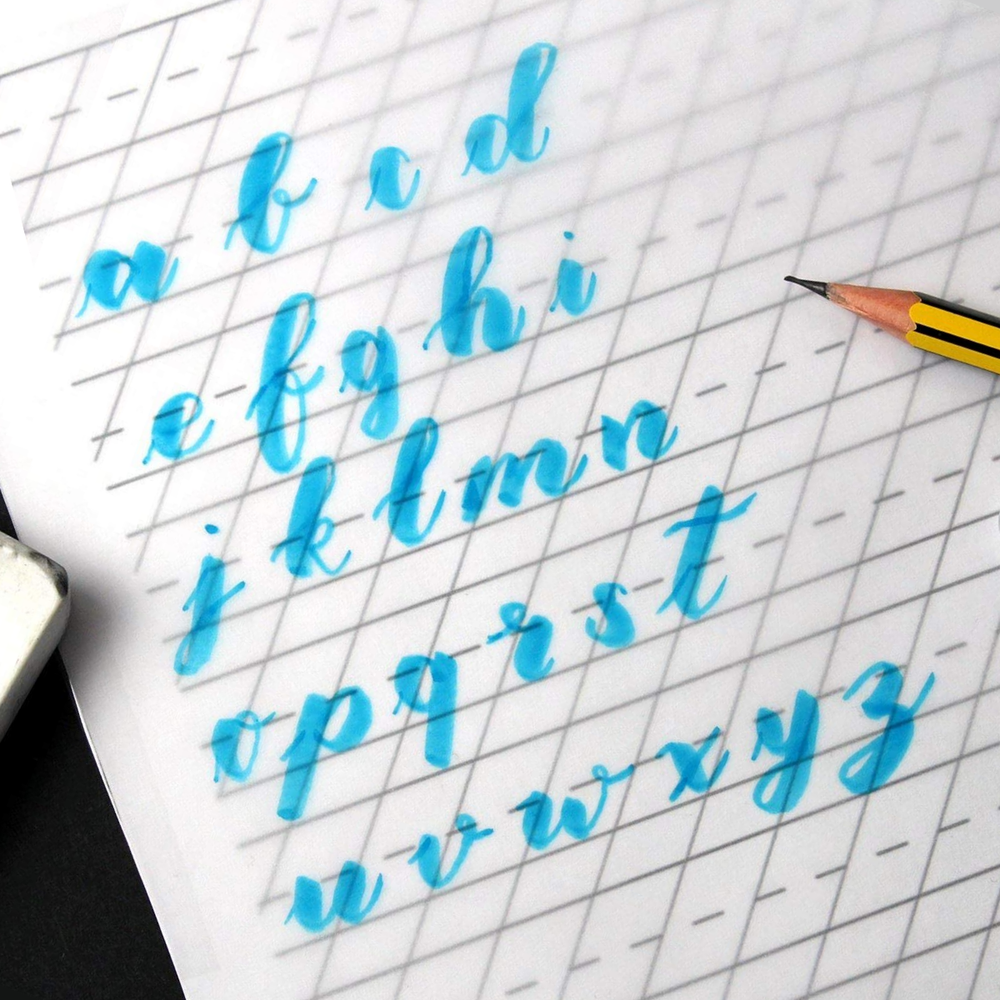 a b c d
e f g h i
j k l m n
o p q r s t
u v w x y z